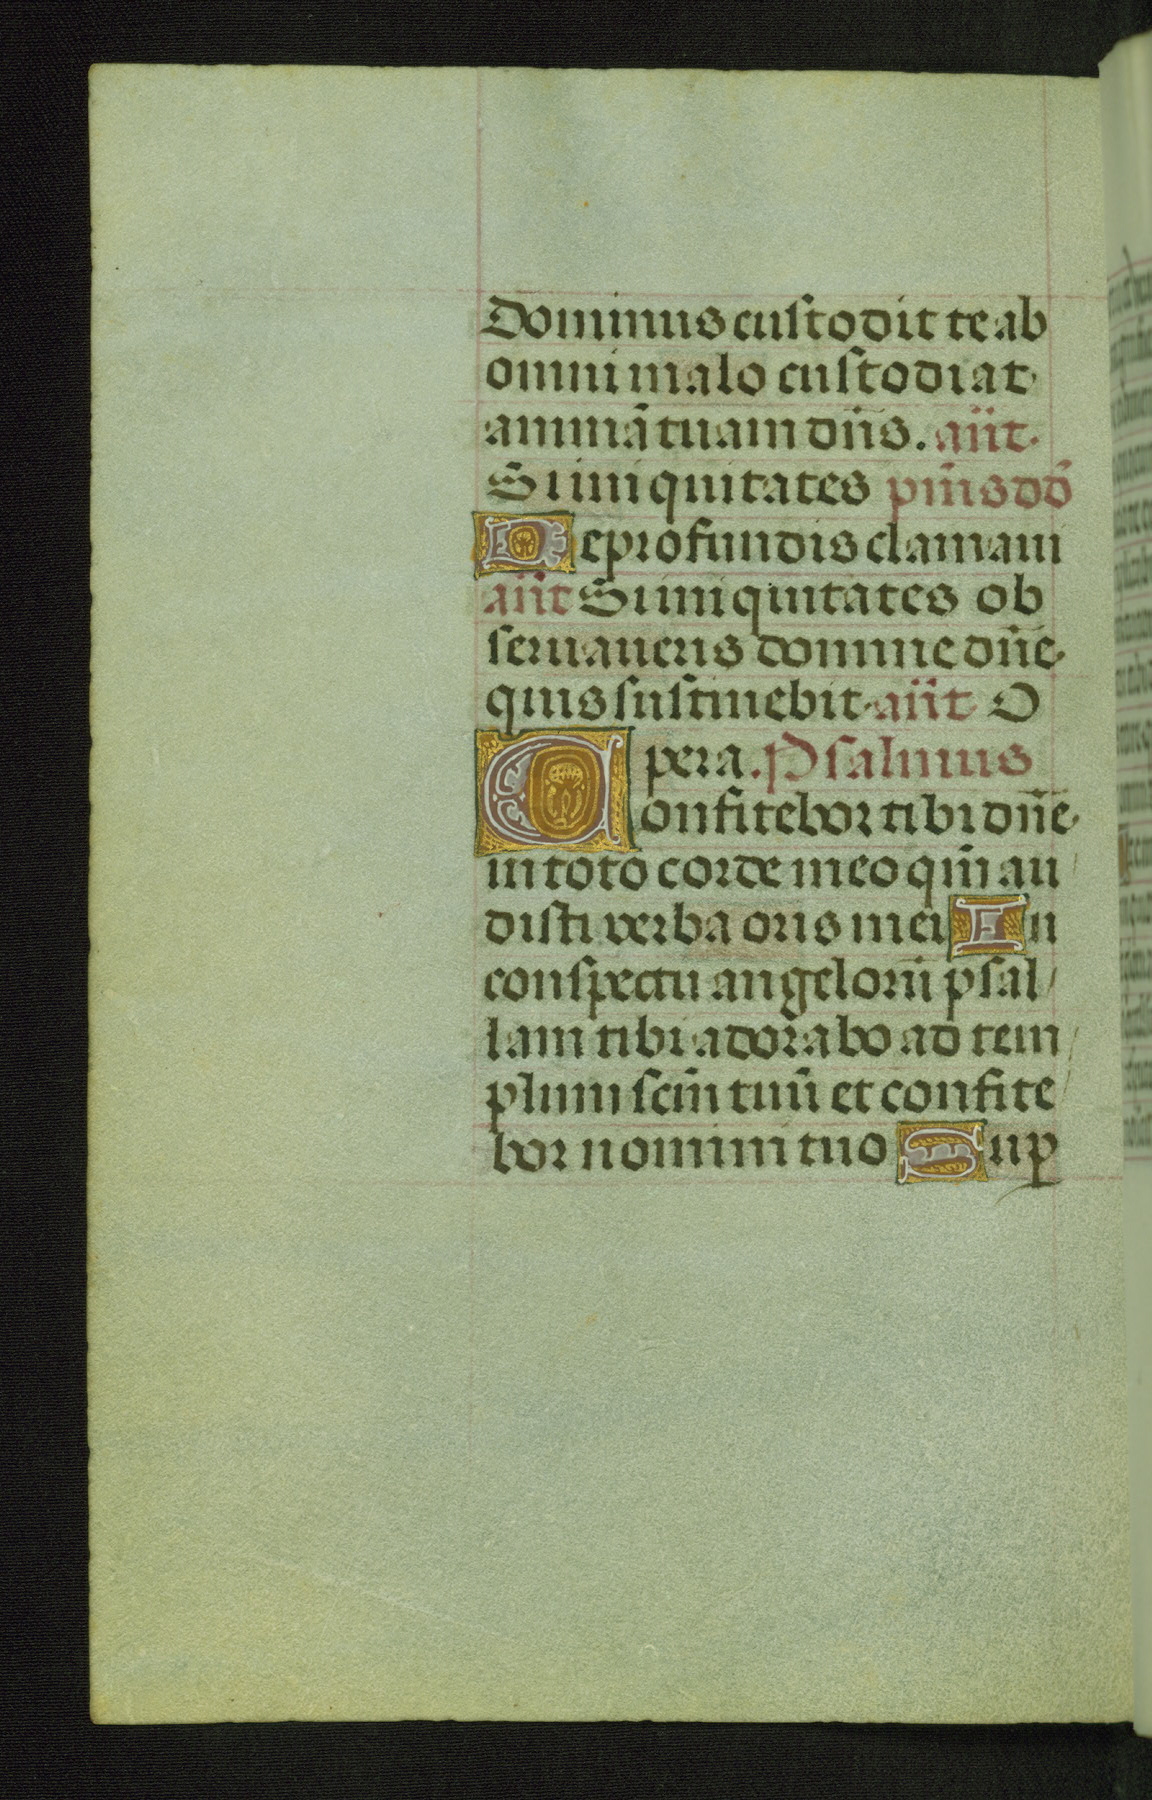 Dominus custodit te ab
omni malo custodiat
animā tuam dn̄s. an̄t.
Si iniquitates ps̄ms dd̄
De profundis clamaui
an̄t Si iniquitates ob
seruaueris domine dn̄e
quis sustinebit. an̄t O
pera. Psalmus
Confitebor tibi dn̄e
in toto corde meo qm̄ au
disti verba oris mei In
conspectu angelorū psal
lam tibi adorabo ad tem
plum scm̄ tuū et confite
bor nomini tuo Sup